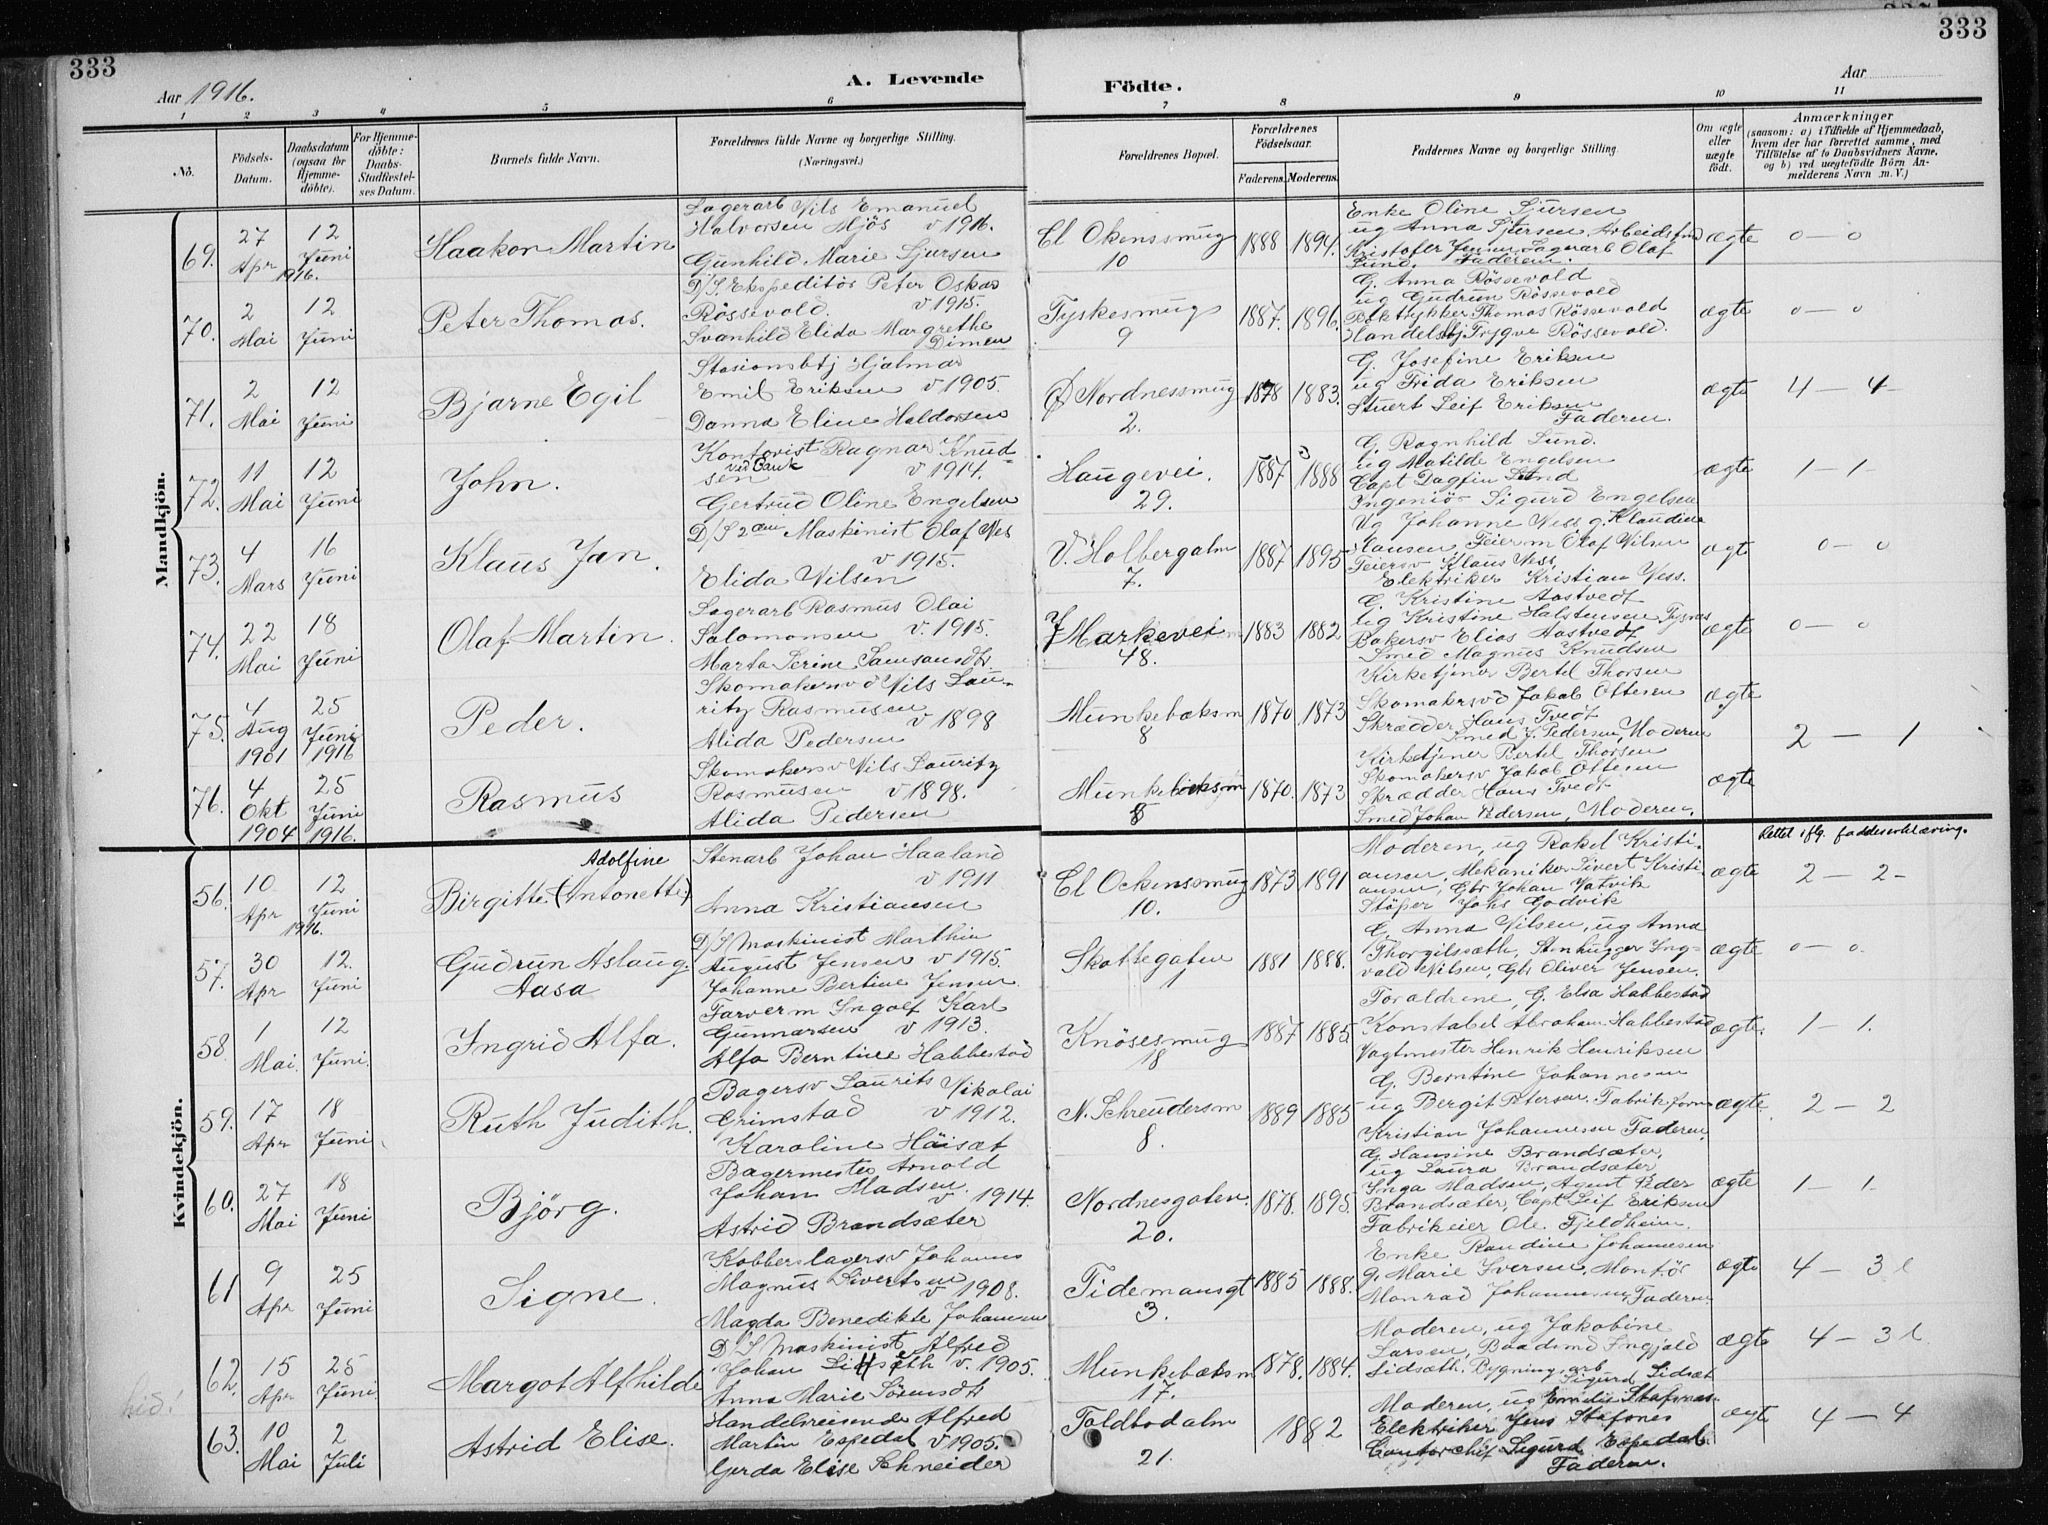 333
333
Aar 1916.
A. Levende
Födte.
Aar
1 2 3 4 5 6 7 8 9 10 11
No.
Födsels-Datum.
Daabsdatum (ogsaa for Hjemmedöbte).
For Hjemmedöbte: Daabs-Stadfæstelses Datum.
Barnets fulde Navn.
Forældrenes fulde Navne og borgerlige Stilling. (Næringsvei.)
Forældrenes Bopæl.
Forældrenes Födselsaar.
Faderens. Moderens.
Faddernes Navne og borgerlige Stilling.
Om ægte eller uægte födt.
Anmærkninger
(saasom: a) i Tilfælde af Hjemmedaab, hvem der har forrettet samme, med Tilföielse af to Daabsvidners Navne, og b) ved uægtefödte Börn Anmelderens Navn m. V.)
Mandkjön.
69. 27 Apr 12 Juni 1916. Haakon Martin
Lagerarb Nils Emanuel
Halvorsen Mjös v 1916.
Gunhild Marie Sjursen
Cl Okenssmug 10 1888 1894.
Enke Oline Sjursen
ug Anna Sjursen, Arbeidsfm
Kristofer Jensen Lagerarb Olaf
Lund. Faderen.
ægte 0 — 0
70. 2 Mai 12 Juni Peter Thomas.
D/S. Ekspeditör Peter Oskar
Rössevold. v 1915.
Svanhild Elida Margrethe
Dimen
Tyskesmug 9 1887. 1896.
G. Anna Rössevold
ug Gudrun Rössevold
Boktrykker Thomas Rössevold
Handelsbtj Trygve Rössevold.
ægte 0 — 0
71. 2 Mai 12 Juni Bjarne Egil
Stasionsbtj Hjalmar
Emil Eriksen v 1905.
Danna Eline Haldorsen
Ø Nordnessmug 2. 1878 1883.
G. Josefine Eriksen
ug Frida Eriksen
Stuert Leif Eriksen
Faderen.
ægte 4 — 4
72. 11 Mai 12 Juni John.
Kontorist Ragnar Knud-
ved Bank
sen v 1914.
Gertrud Oline Engelsen
Haugevei. 29. 1887 1888
G. Ragnhild Lund.
ug Matilde Engelsen
Capt Dagfin Lund
Ingeniör Sigurd Engelsen
ægte 1 — 1
73. 4 Mars 16 Juni Klaus Jan.
D/S 2den Maskinist Olaf Nes
v 1915.
Elida Nilsen
V. Holbergalm 7. 1887 1895
Ug Johanne Ness g. Klaudine
Hansen, Feierm Olaf Nilsen
Feiersv Klaus Ness,
Elektriker Kristian Ness.
ægte 0 — 0
74. 22 Mai 18 Juni Olaf Martin.
Lagerarb Rasmus Olai
Salomonsen v. 1915.
Marta Serine Samsonsdtr
Markeveim 48. 1883 1882
G. Kristine Aastvedt
ug Kristine Halstensen Tysnes
Bakersv Elias Aastvedt
Smed Magnus Knudsen
ægte 0 — 0
75. 4 Aug 1901 25 Juni 1916 Peder.
Skomakersvd Nils Lau-
ritz Rasmusen
v 1898
Alida Pedersen
Munkebæksm 8 1870. 1873
Kirketjener Bertel Thorsen
Skomakersvd Jakob Oftesen
Skrædder Hans Tvedt
Smed J. Pedersen, Moderen
ægte 2 — 1
76. 4 Okt 1904 25 Juni 1916. Rasmus
Skomakersv Nils Lauritz
Rasmusen v 1898.
Alida Pedersen
Munkebæksm 8 1870. 1873
Kirketjener Bertel Thorsen
Skomakersv Jakob Oftesen
Skrædder Hans Tvedt
Smed Johan Pedersen, Moderen.
ægte
Kvindekjön.
Rettet iflg. faddererklæring.
56. 10 Apr 12 Juni 1916. Adolfine
Birgitte (Antonette)
Stenarb Johan Haaland
v 1911
Anna Kristiansen
Cl Ockenssmug 10. 1873 1891
Moderen, ug Rakel Kristi-
ansen, Mekaniker Sivert Kristi-
ansen, Gbr Johan Vatvik
Stöper Johs Godvik
ægte 2 — 2
57. 30 Apr 12. Juni Gudrun Aslaug.
Aasa
D/S Maskinist Marthin
August Jensen v 1915.
Johanne Bertine Jensen
Skottegaten 1 1881 1888.
G. Anna Nilsen, ug Anna
Thorgilssæth, Stenhugger Ing-
vald Nilsen, Gbr Oliver Jensen.
ægte 0 — 0.
58. 1 Mai. 12 Juni. Ingrid Alfa.
Farverm Ingolf Karl
Gunnarsen v 1913.
Alfa Berntine Habbestad
Knösesmug 18 1887 1885.
Foraldrene, G. Elsa Habbestad
Konstabel Abraham Habbestad
Vagtmester Henrik Henriksen
ægte. 1 — 1.
59. 17 Apr 18 Juni. Ruth Judith.
Bagersv Laurits Nikolai
Grimstad v 1912.
Karoline Häisæt
N. Schreudersm 8. 1889 1885
G. Berntine Johannesen
ug Bergit Petersen. Fabrikform
Kristian Johannesen Faderen.
ægte. 2 — 2
60. 27 Mai 18 Juni Björg.
Bagermester Arnold
Johan Madsen.
v 1914.
Astrid Brandsæter
Nordnesgaten. 20. 1878. 1895.
G. Hansine Brandsæter,
ug Laura Brandsæter
Inga Madsen, Agent Peder
Brandsæter, Capt Leif Eriksen
Fabrikeier Ole. Fjeldheim.
ægte 1 — 1.
61 9 Apr 25 Juni Signe.
Kobberslagersv Johannes
Magnus Sivertsen
v 1908.
Magda Benedikte Johansen
Tidemansgt 3. 1885 1888.
Enke Randine Johannesen
g. Marie Iversen, Montör
Monrad Johannesen, Faderen.
ægte 4 — 3 l
62. 15 Apr 25 Juni Margot Alfhilde
D/S Maskinist Alfred
Johan Lidsæth v. 1905.
Anna Marie Sörensdtr
Munkebæksm 17. 1878. 1884.
Moderen, ug Jakobine
Larsen, Baadsmd Ingjald
Lidsæth. Bygningsarb
Sigurd Lidsæt
ægte 4 — 3 l
63. 10 Mai 2 Juli Astrid Elise.
Handelsreisende Alfred
Martin Espedal v 1905.
Gerda Elise Schneider
Toldbodalm 21. 1882
Moderen, ug Emilie Stafsnes.
Elektriker Jens Stafsnes
Contorchef Sigurd Espedal
Faderen.
ægt 4 — 4